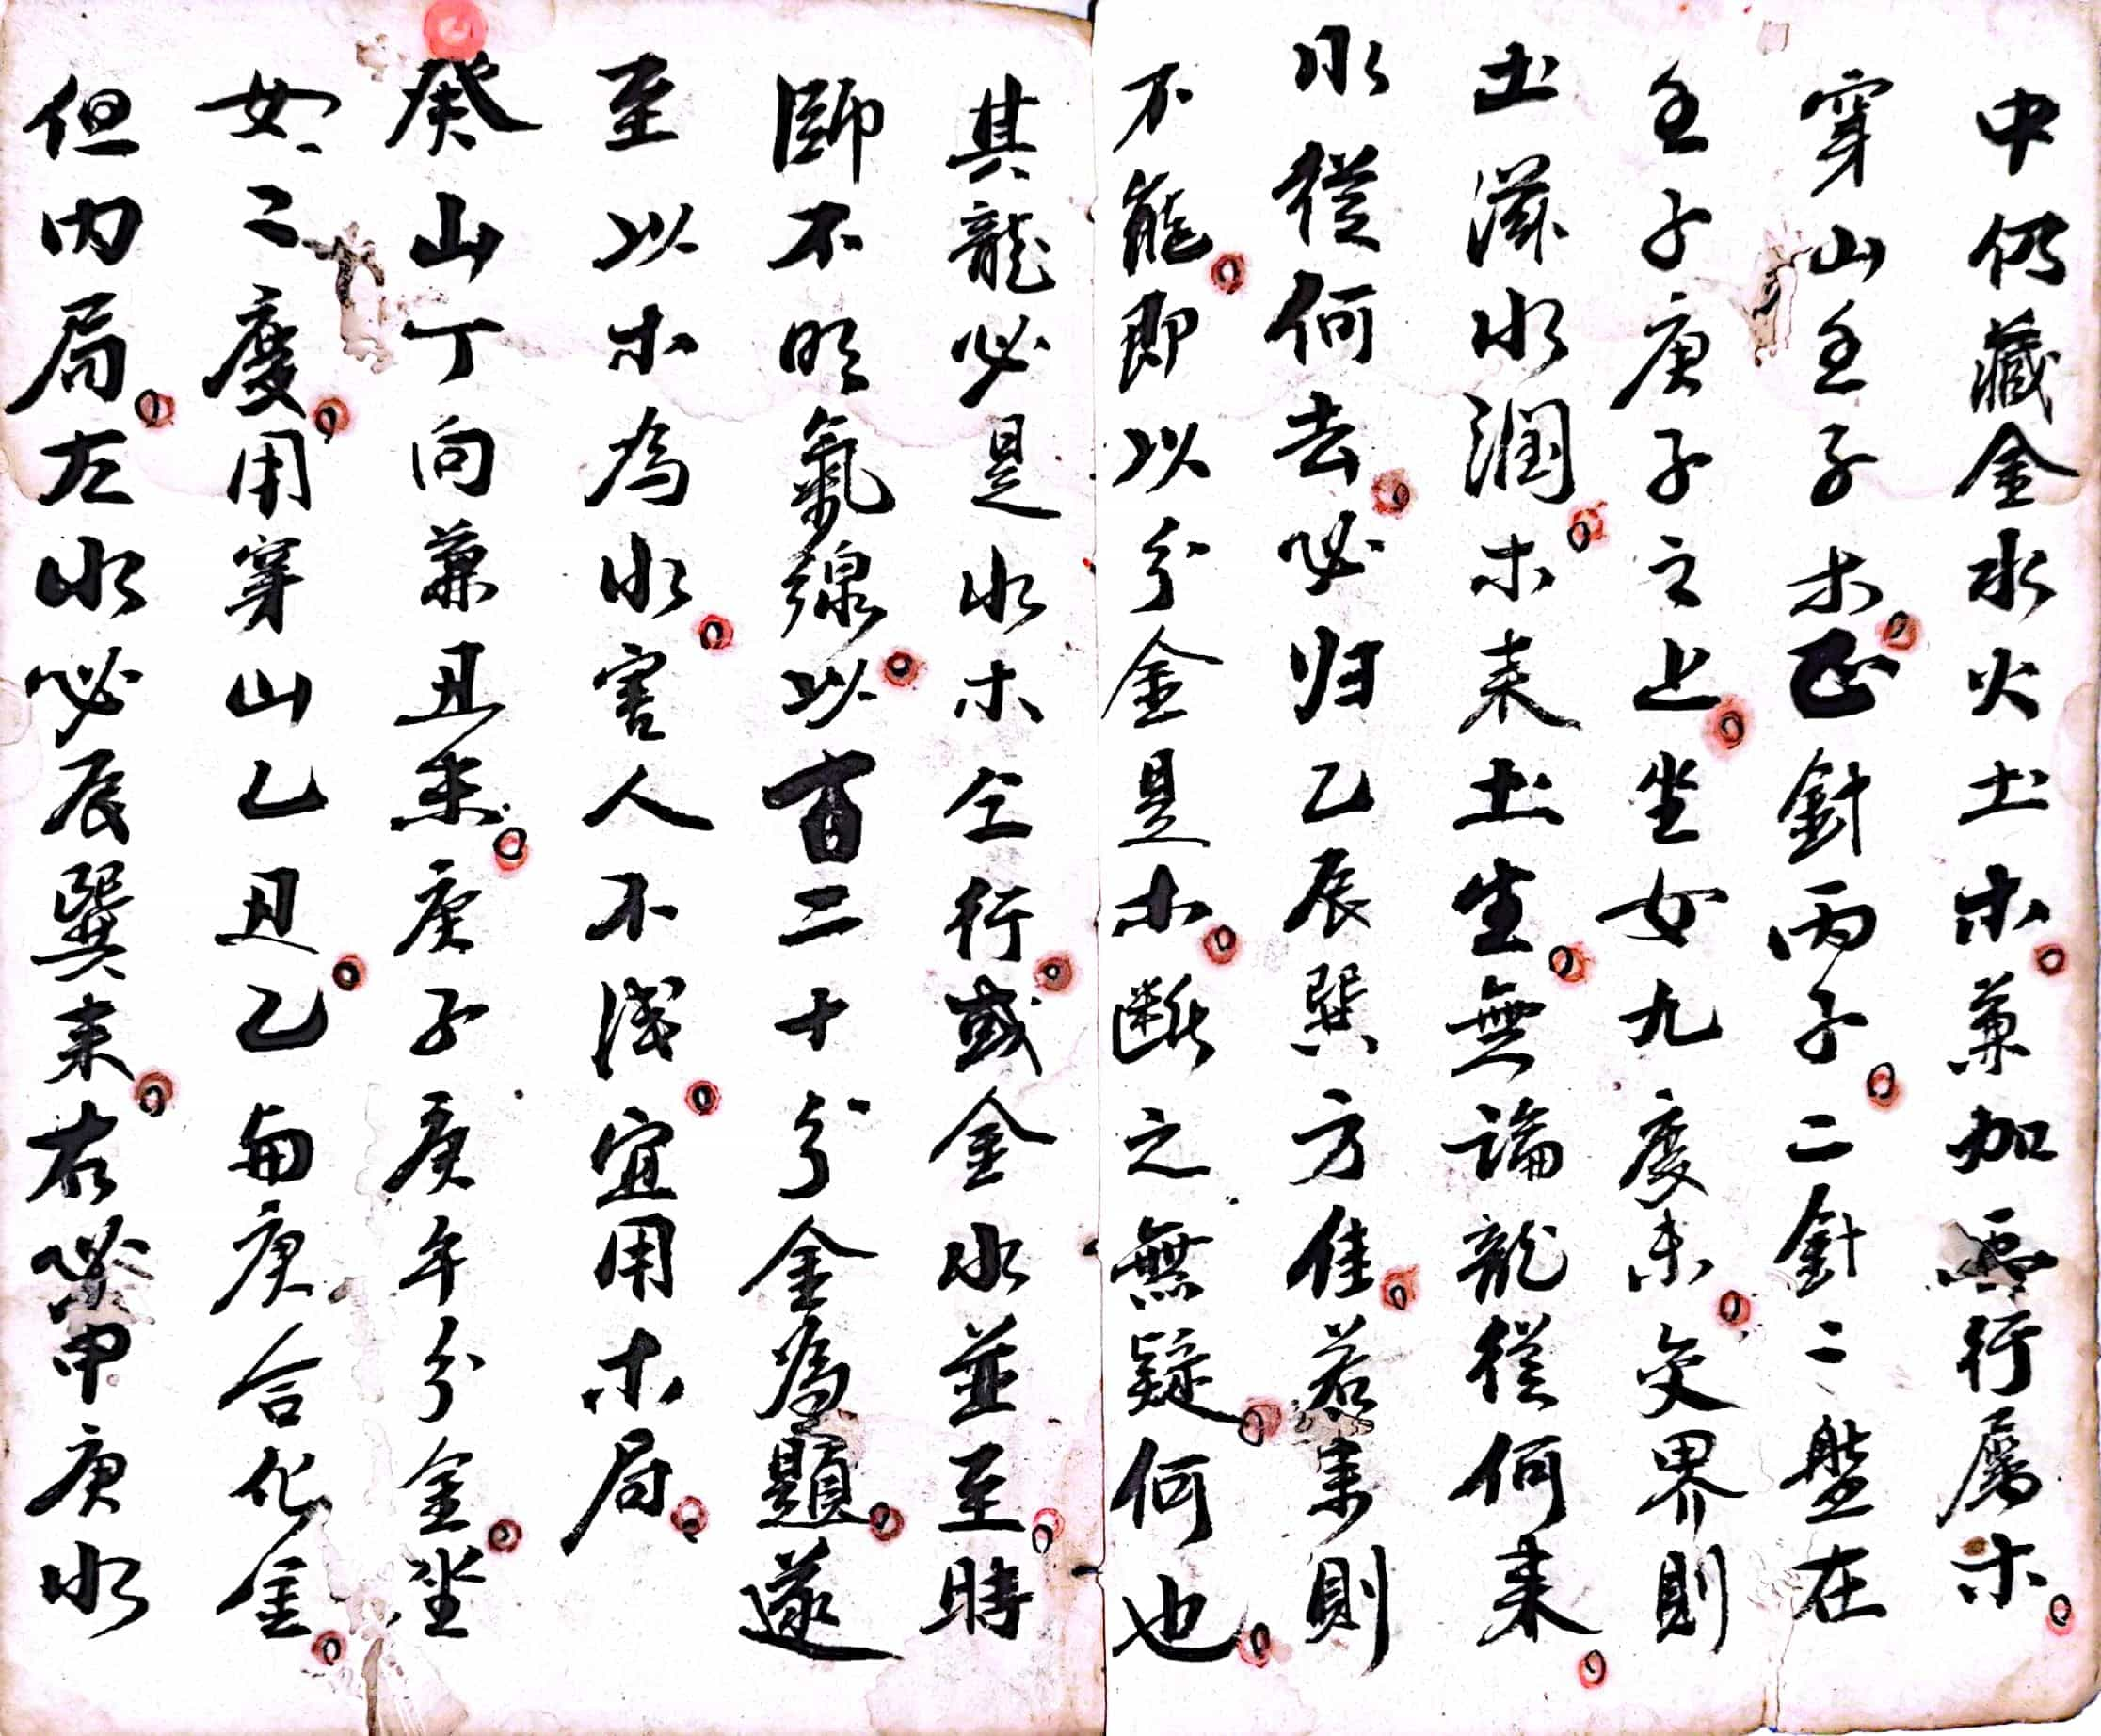 中仍藏金水火土木。兼加五行屬木。
穿山壬子木。正針丙子。二針二盤在
壬子庚子之上。坐女九度未。交界則
土滋水潤。木来土生。無論龍從何来。
水從何去。必归乙辰巽方佳。若未則
不能。即以分金是木。断之無疑。何也。
其龍必是水木仝行。或金水並至。時
師不明氣線。以百二十分金為題。遂
至以木為水。害人不浅。宜用木局。
癸山丁向兼丑未。庚子庚午分金。坐
女二度。用穿山乙丑。乙與庚合化金。
但内局。左水必辰巽来。右必甲庚水